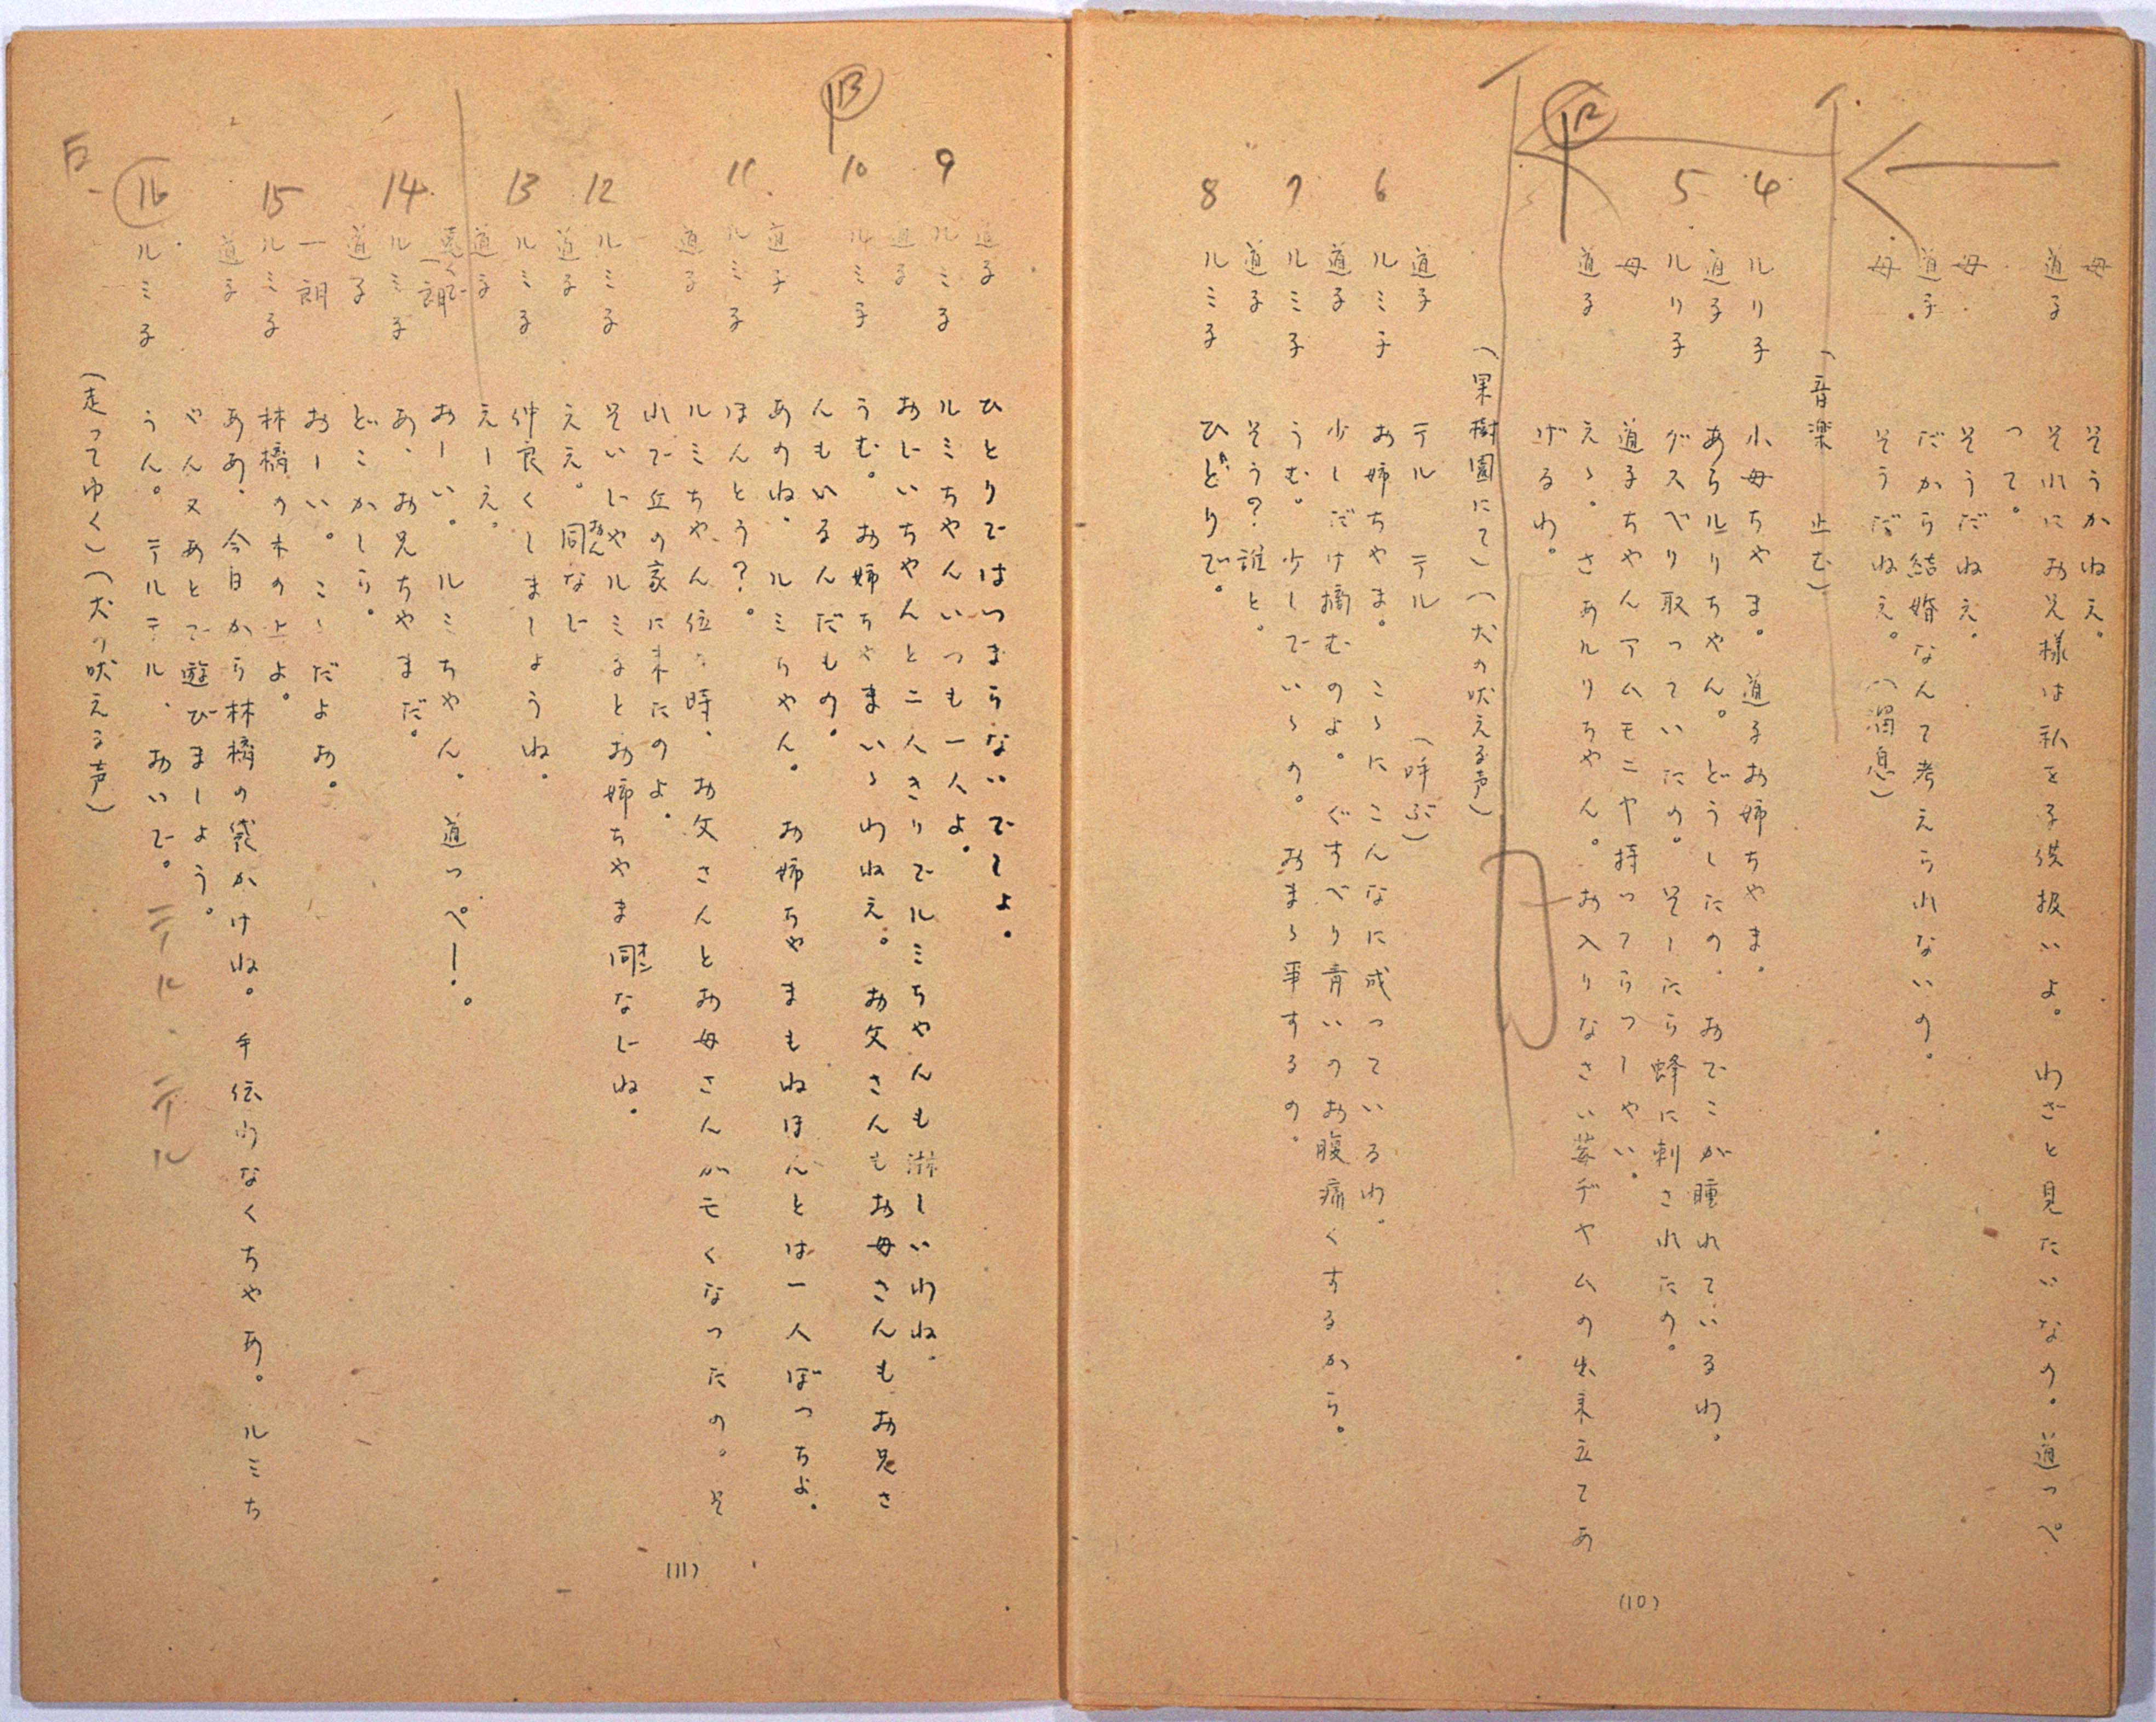 母　そうかねえ。
道子　それにお兄様は私を子供扱いよ。わざと見たいなの。道っペ
って。
母　そうだねえ。
道子　だから結婚なんて考えられないの。
母　そうだねえ。（溜息）
（音楽　止む）
4　ルリ子　小母ちゃま。道子お姉ちゃま。
道子　あらルリちゃん。どうしたの。おでこが腫れているわ。
5　ルリ子　グスベリ取っていたの。そしたら蜂に刺されたの。
母　道子ちゃんアムモニヤ持ってらつしゃい。
道子　えゝ。さあルリちゃん。お入りなさい苺ヂャムの出来立てあ
げるわ。
⑫
（果樹園にて）（犬の吠える声）
道子　テル　テル　（呼ぶ）
6　ルミ子　お姉ちゃま。こゝにこんなに成っているわ。
道子　少しだけ摘むのよ。ぐすべり青いのお腹痛くするから。
7　ルミ子　うむ。少しでいゝの。おまゝ事するの。
道子　そう？誰と。
8　ルミ子　ひとりで。
(10)
道子　ひとりではつまらないでしょ。
9　ルミ子　ルミちゃんいつも一人よ。
道子　おじいちゃんと二人きりでルミちゃんも淋しいわね。
⑬
10　ルミ子　うむ。お姉ちゃまいゝわねえ。お父さんもお母さんもお兄さ
んもいるんだもの。
道子　あのね、ルミちゃん。お姉ちゃまもねほんとは一人ぼっちよ。
11　ルミ子　ほんとう？。
道子　ルミちゃん位の時、お父さんとお母さんが亡くなったの。そ
れで丘の家に来たのよ。
12　ルミ子　そいじゃルミ子とお姉ちゃま同なじね。
オン
道子　ええ。同なじ
おん
13　ルミ子　仲良くしましょうね。
道子　えーえ。
一朗　おーい。ルミちゃん。道っペー！。
遠くで
14　ルミ子　あ、お兄ちゃまだ。
道子　どこかしら。
一朗　おーい。こゝだよお。
15　ルミ子　林檎の木の上よ。
道子　ああ、今日から林檎の袋かけね。手伝わなくちゃあ。ルミち
ゃん又あとで遊びましょう。
⑯　ルミ子　うん。テルテル、おいで。テル　テル
（走ってゆく）（犬の吠える声）
(11)